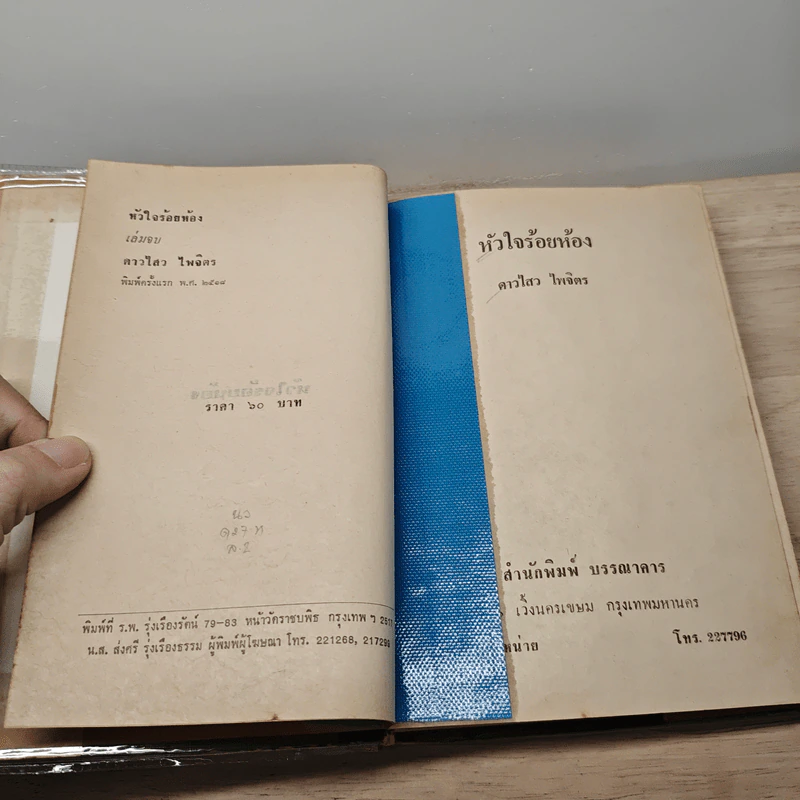 หัวใจร้อยห้อง
เล่มจบ
ดาวไสว ไพจิตร
พิมพ์ครั้งแรก พ.ศ. ๒๕๑๘
หัวใจร้อยห้อง
ราคา ๖๐ บาท
นว
พิมพ์ที่ ร.พ. รุ่งเรืองรัตน์ 79–83 หน้าวัดราชบพิธ กรุงเทพ ฯ
น.ส. ส่งศรี รุ่งเรืองธรรม ผู้พิมพ์ผู้โฆษณา โทร. 221268,
หัวใจร้อยห้อง
ดาวไสว ไพจิตร
สำนักพิมพ์ บรรณาคาร
เวิ้งนครเขษม กรุงเทพมหานคร
หน่าย โทร. 227796